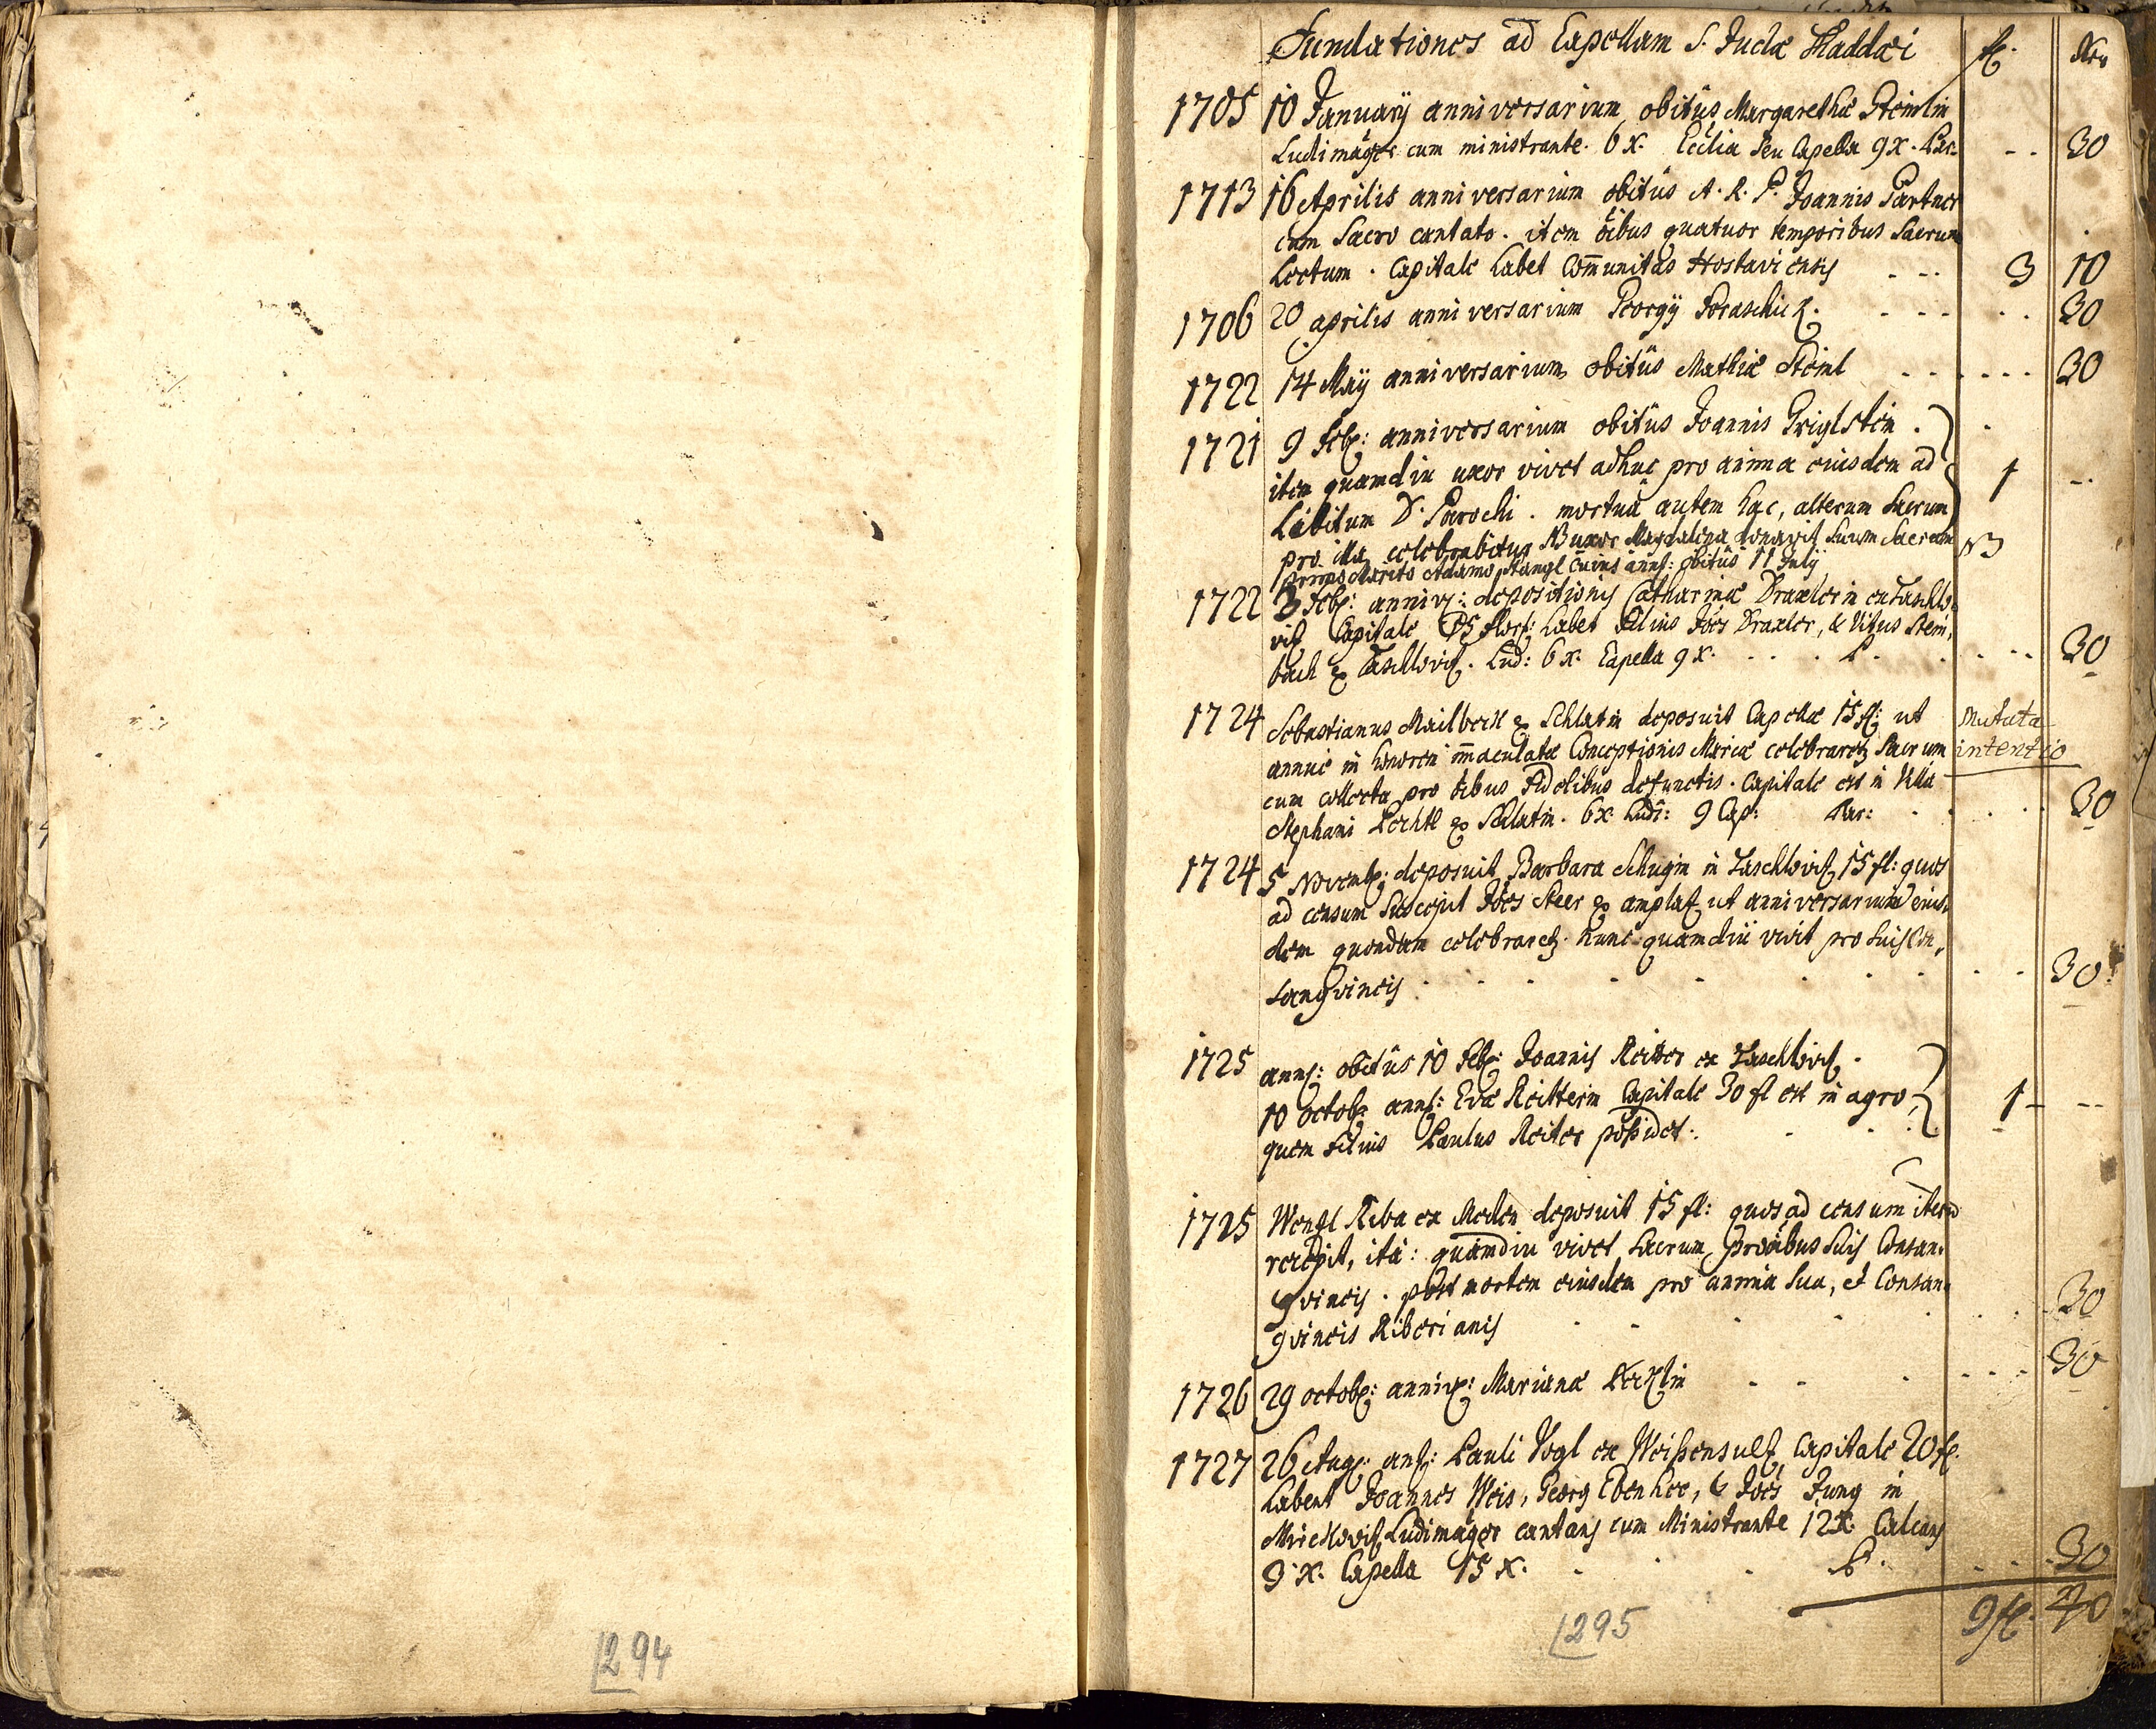 Fundationes ad Capellam S. Judæ Thaddæi fl. Xr.
1705 10 January anniversarium obitûs Margarethæ
Ludimagr cum ministrante. 6 x. Ecclia seu Capella 9 x. Par. 30
1713 16 Aprilis anniversarium obitûs A. R. P. Joannis Partner
cum Sacro cantato. item õibus quatuor temporibus Sacrum
Lectum. Capitale habet Com̃unitas Hostaviensis 3 10
1706 20 aprilis anniversarium Georgÿ 30
1722 14 Maÿ anniversarium obitûs Mathiæ Steinl 30
1721 9 Feb: anniversarium obitûs Joannis Griglstein.
item quamdiu uxor vivet adhuc pro anima eiusdem ad 1 --
Libitum D. Parochi. mortuâ autem hac, alterum Sacrum
pro illa celebrabitur NB uxor Magdalena donavit suum Sacrum N3
Marito Adamo Stangl cuius anns: obitûs 11 July
1722 3 Feb: anniv: depositionis Catharinæ Draxlerin ex Taschlo-
vitz Capitale 15 flor: habet filius Joẽs Draxler, & Vitus Stein,
bach ex Taschlovitz. Lud: 6 x. Capella 9 x. P. 30
1724 Sebastianus Mailbeck ex Schlatin deposuit Capellæ 15 fl: ut Mutata
annuè in honorem im̃aculatæ Conceptionis Mariæ celebraretur Sacrum intentio
cum collecta pro õibus Fidelibus defunctis. Capitale est in Villa
Stephani ex Schlatin. 6 x. Ludi: 9 Cap: Par: 30
1724 5 Novemb: deposuit Barbara Schugin in Taschlovitz 15 fl: quos
ad censum suscepit Joẽs Steer ex amplatz ut anniversarium eius-
dem quondam celebraretur. nunc quamdiu vivit pro suis Con,
sangvineis 30
1725 anns: obitûs 10 Feb: Joannis Reitter ex Taschlovitz.
10 octob: anns: Evæ Reitterin Capitale 30 fl est in agro, 1 --
quem filius Paulus Reiter possidet.
1725 Wentzl Riba ex Meden deposuit 15 fl: quos ad censum iterum
recepit, ita: quamdiu vivet Sacrum pro õibus suis Consan-
gvineis. post mortem eiusdem pro anima sua, et Consan-
gvineis Riberianis 30
1726 29 octob: anniv: Marianæ 30
1727 26 Aug: ans: Pauli Vogl ex Weissensultz Capitale 20 fl.
habent Joannes Weis, Georg Ebenhoe, & Joẽs Jung in
Mirckovitz Ludimagr cantans cum Ministrante 12 x. Calcans
3 x. Capella 15 x. P. 30
9 fl. 40
294
295